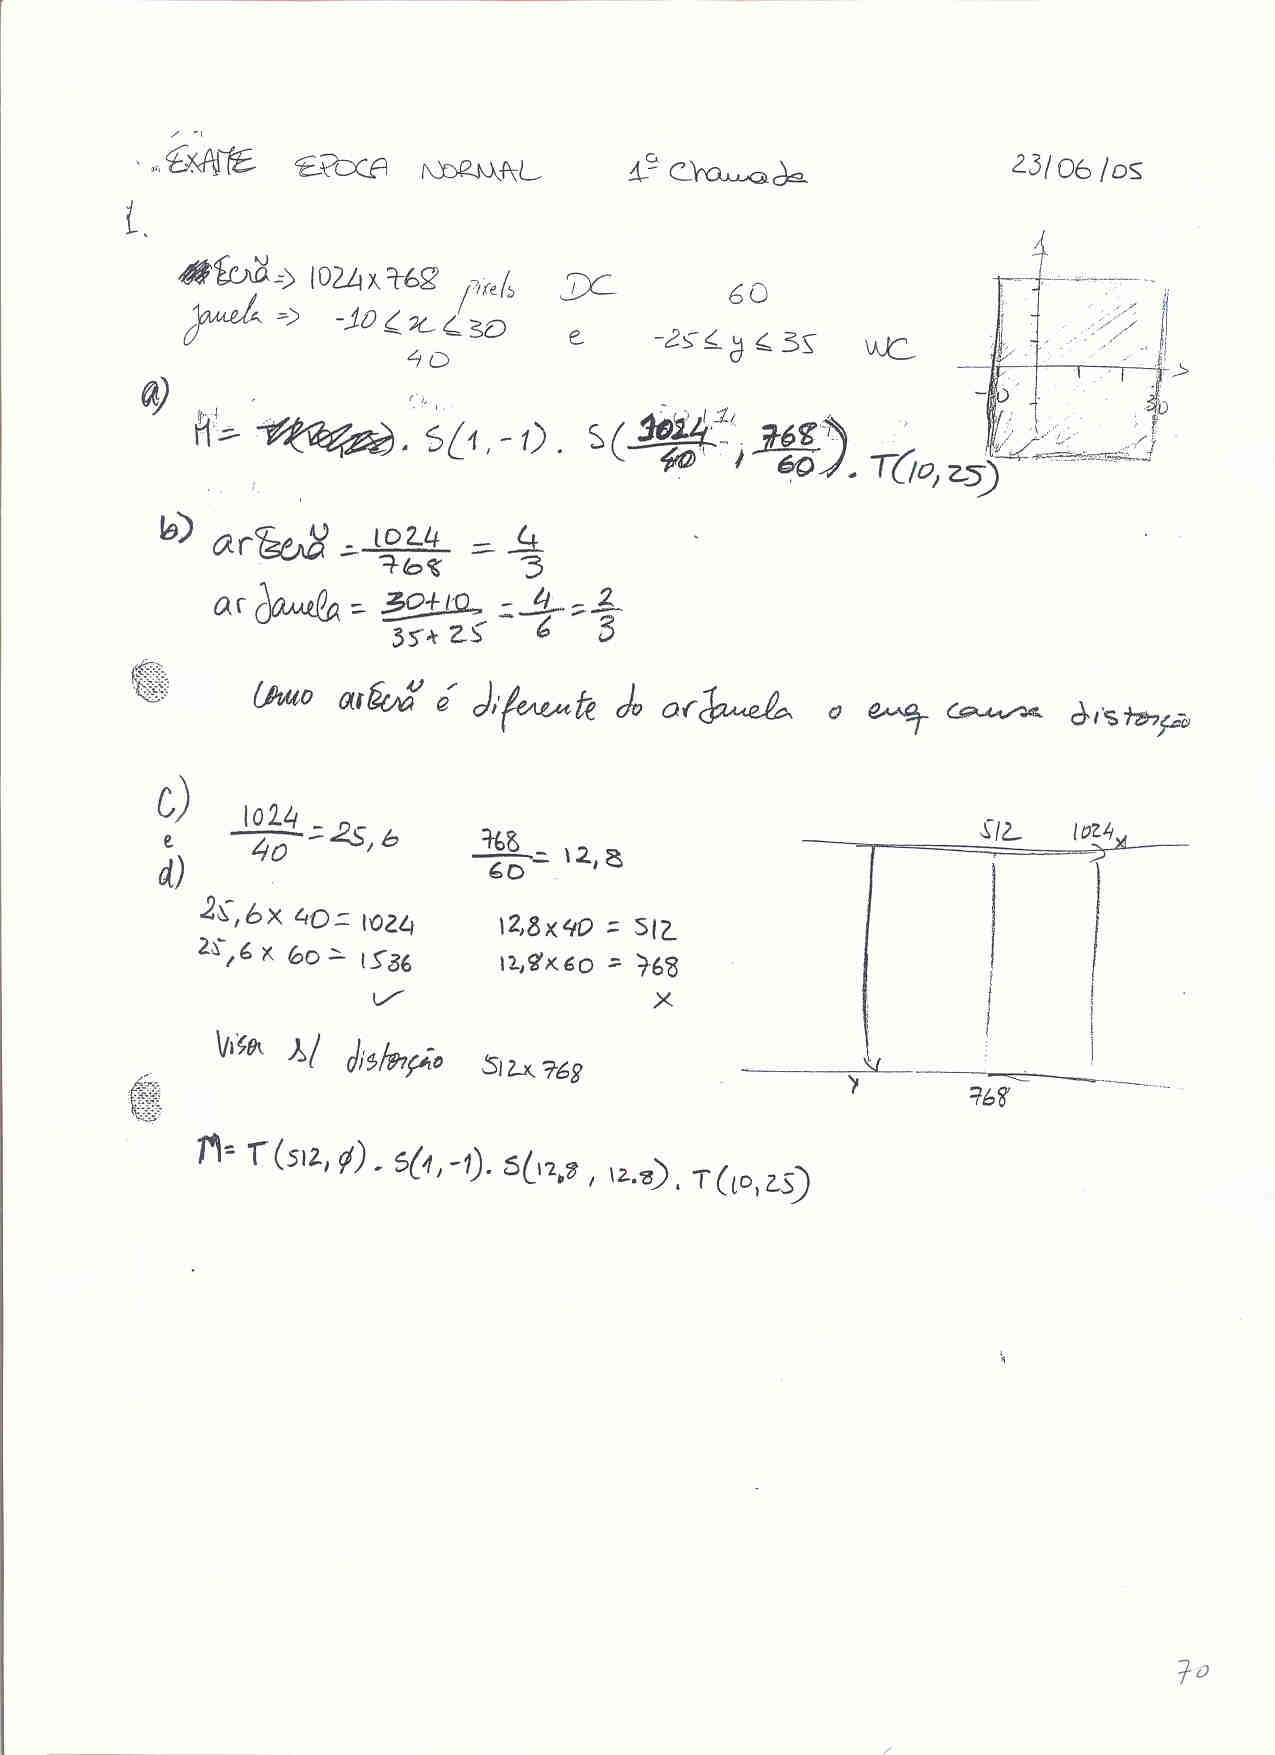 EXAME EPOCA NORMAL 1ª Chamada 23/06/05
1.
Ecrã => 1024x768 pixels DC 60
janela => -10 ≤ x ≤ 30 e -25 ≤ y ≤ 35 WC
40
-10 30
a)
M = . S(1,-1) . S(1024/40 , 768/60) . T(10,25)
b) ar Ecrã = 1024/768 = 4/3
ar Janela = 30+10/35+25 = 4/6 = 2/3
Como arEcrã é diferente do arJanela o enq causa distorção
c) e d)
1024/40 = 25,6 768/60 = 12,8
25,6 x 40 = 1024 12,8x40 = 512
25,6 x 60 = 1536 12,8x60 = 768
✓ x
512 1024 x
Visor s/ distorção 512x768
y 768
M= T(512,ø) . S(1,-1). S(12,8 , 12.8) . T(10,25)
70